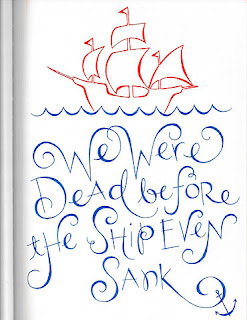 We Were
Dead before
the Ship Even
Sank